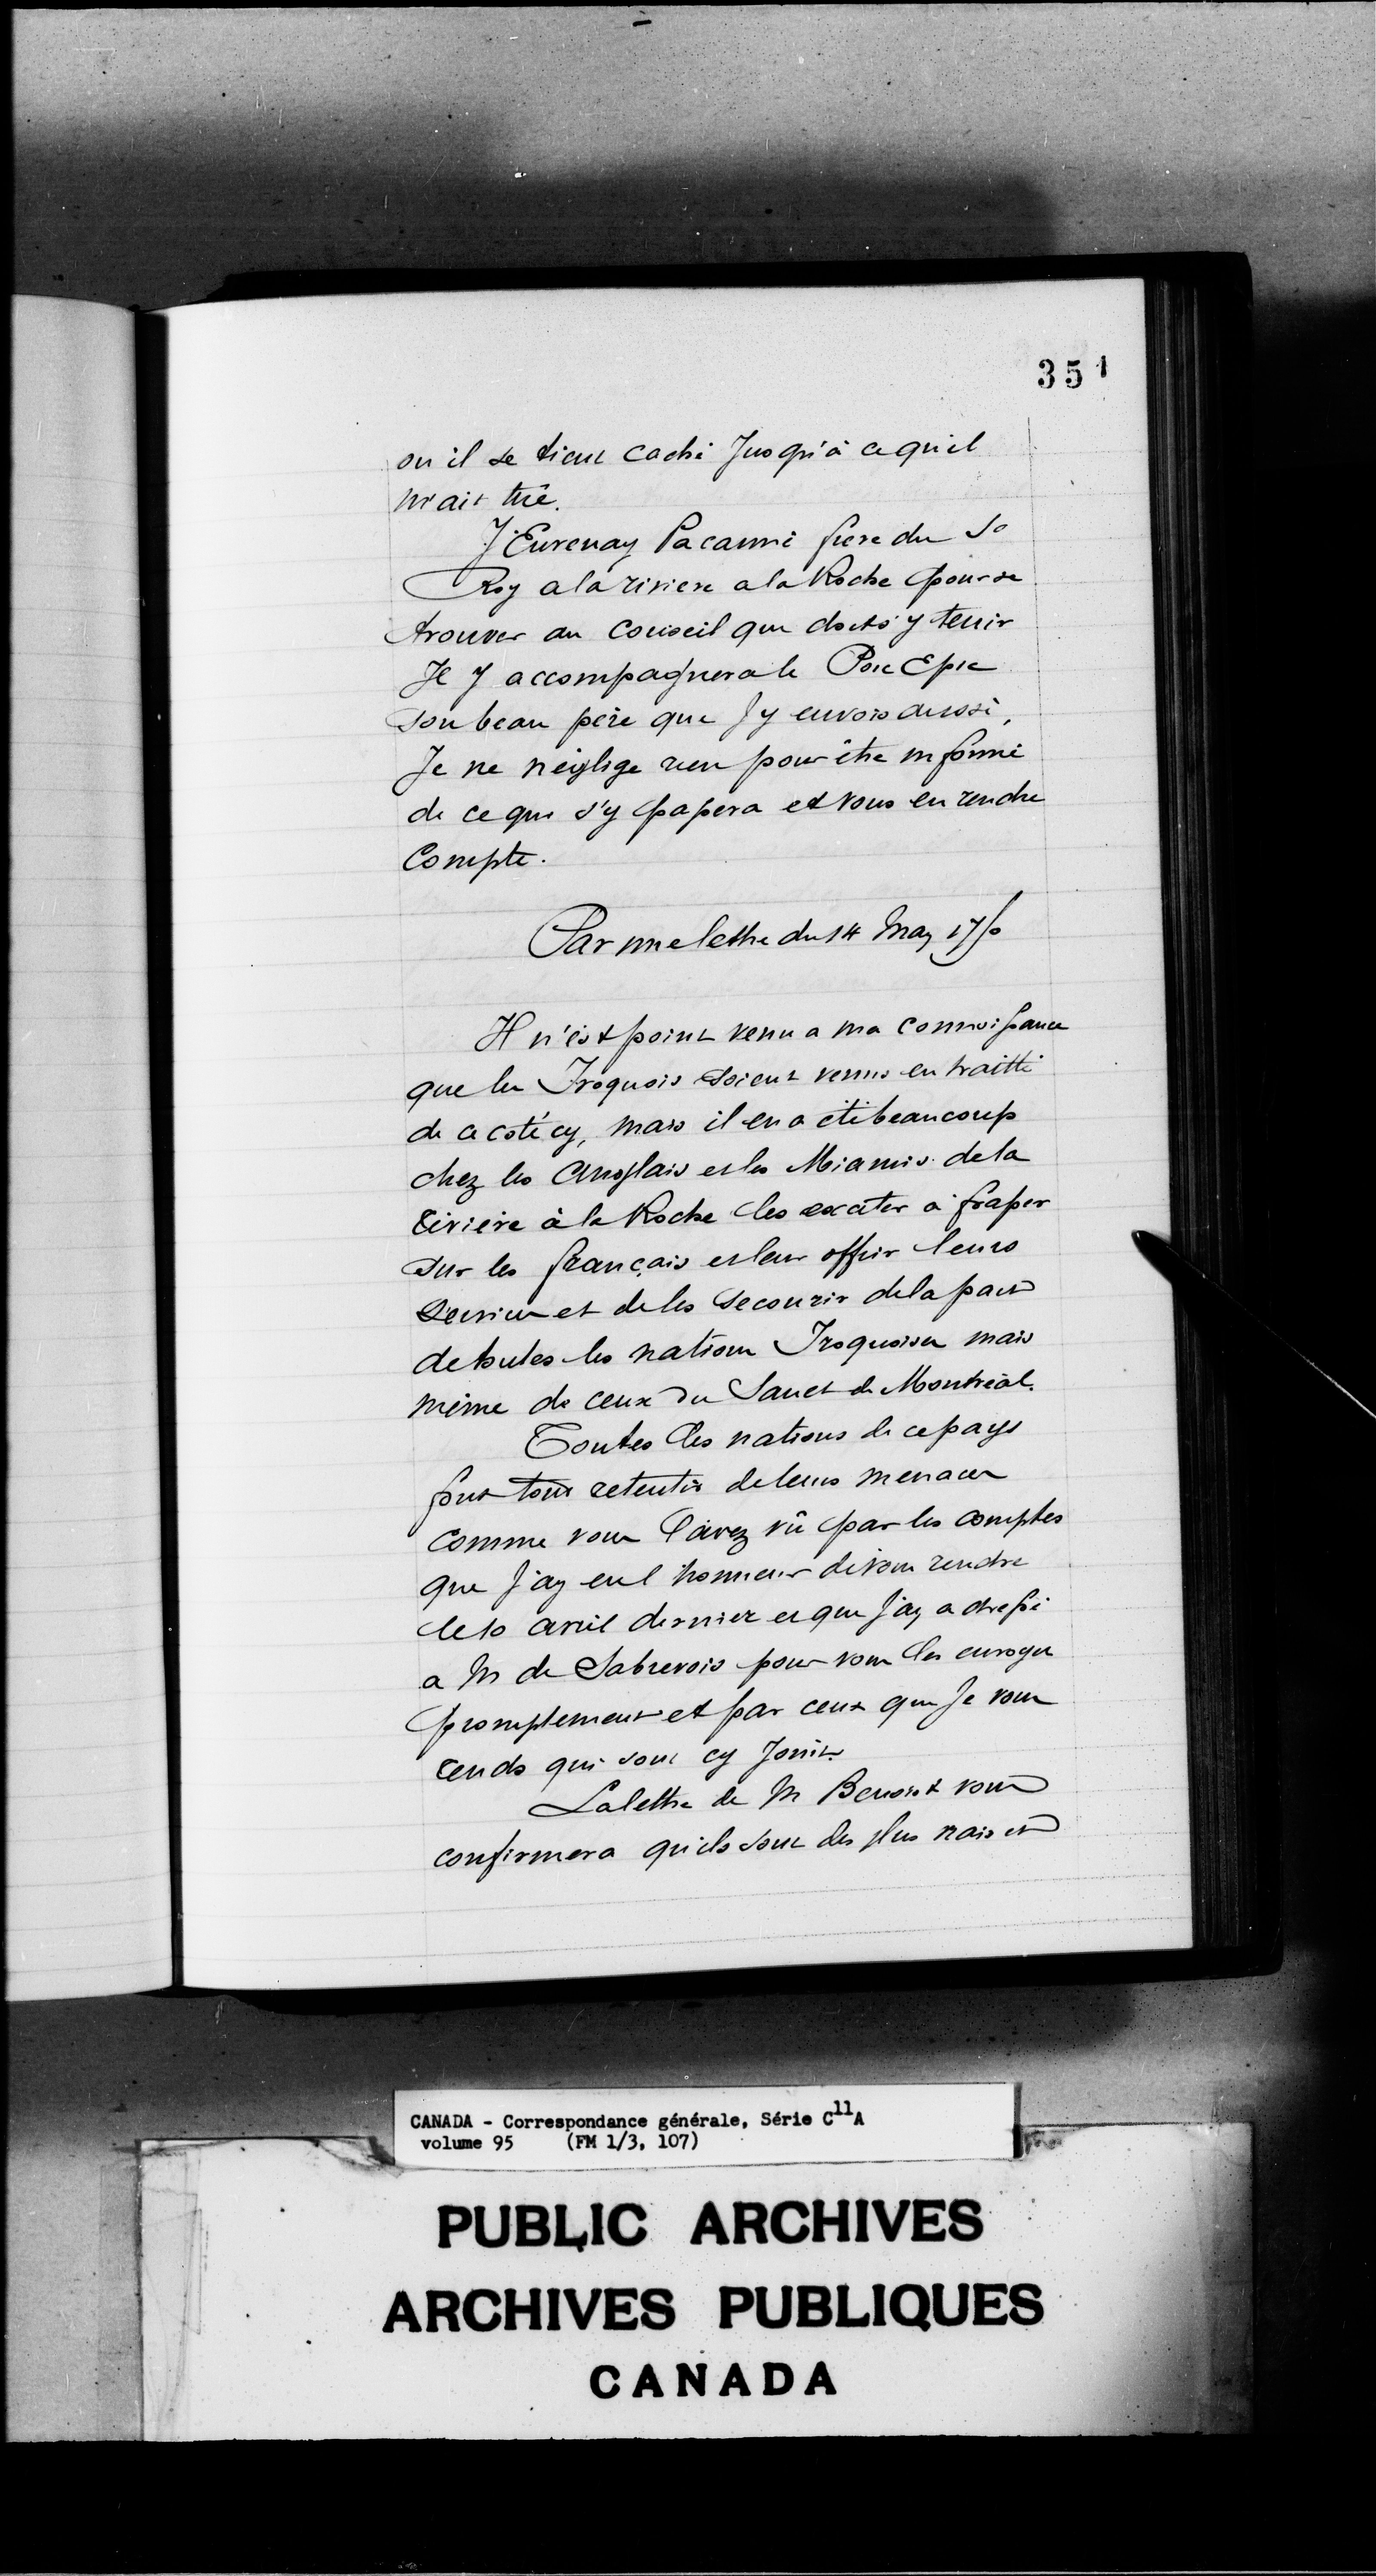 351
ou il se tient caché Jusqu'à ce qu'il
m'ait tué.
J'Envenay Pacanné frere du Sr
Roy a la riviere a la Roche pour se
trouver au Conseil qui doit s'y tenir
Il y accompagnera le Porc Epic
son beau père que J'y envois aussi,
Je ne néglige rien pour être informé
de ce qui s'y passera et vous en rendre
Compte.
Par une lettre du 14 May 1750
Il n'est point venu a ma connoissance
que les Iroquois soient venus en traitte
de ce coté cy, mais il en a été beaucoup
chez les Anglais et les Miamis de la
riviére à la Roche les exciter à fraper
sur les français et leur offrir leurs
services et de les secourir de la part
de toutes les nations Iroquoises mais
même de ceux du Sault de Montréal.
Toutes les nations de ce pays
font tout retentir de leurs menaces
Comme vous l'avez vû par les comptes
que J'ay eu l'honneur de vous rendre
le 10 avril dernier et que J'ay adressé
a M de Sabrevois pour vous les envoyer
promptement et par ceux que Je vous
rends qui sont cy Joints.
La lettre de M Benoist vous
confirmera qu'ils sont des plus vrais et
CANADA - Correspondance générale, Série C11A
volume 95 (FM 1/3, 107)
PUBLIC ARCHIVES
ARCHIVES PUBLIQUES
CANADA